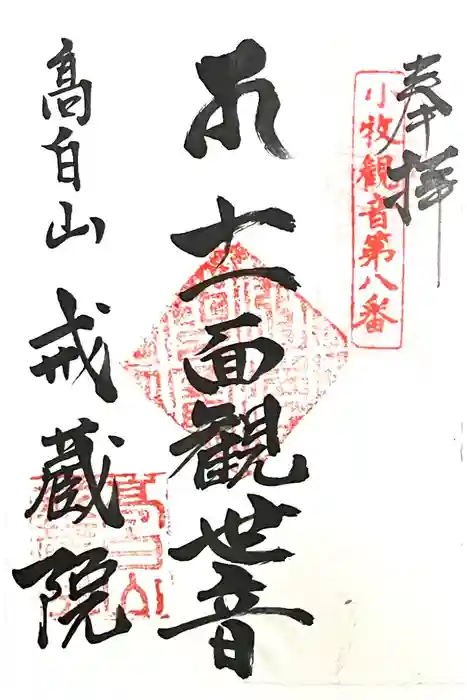 奉拝
小牧観音第八番
十一面観世音
高白山 戒蔵院
高白山